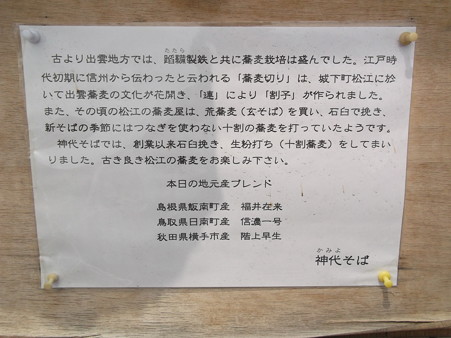 たたら
古より出雲地方では、蹈鞴製鉄と共に蕎麦栽培は盛んでした。江戸時
代初期に信州から伝わったと云われる「蕎麦切り」は、城下町松江に於
いて出雲蕎麦の文化が花開き、「連」により「割子」が作られました。
また、その頃の松江の蕎麦屋は、荒蕎麦（玄そば）を買い、石臼で挽き、
新そばの季節にはつなぎを使わない十割の蕎麦を打っていたようです。
神代そばでは、創業以来石臼挽き、生粉打ち（十割蕎麦）をしてまい
りました。古き良き松江の蕎麦をお楽しみ下さい。
本日の地元産ブレンド
島根県飯南町産 福井在来
鳥取県日南町産 信濃一号
秋田県横手市産 階上早生
かみよ
神代そば